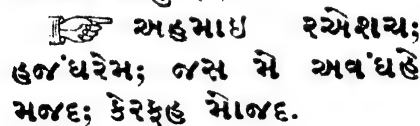 ☞ અહમાઇ રએશચ;
હજંધરેમ; જસ મે અવંધહે
મજદ; કેરફહ મોજદ.